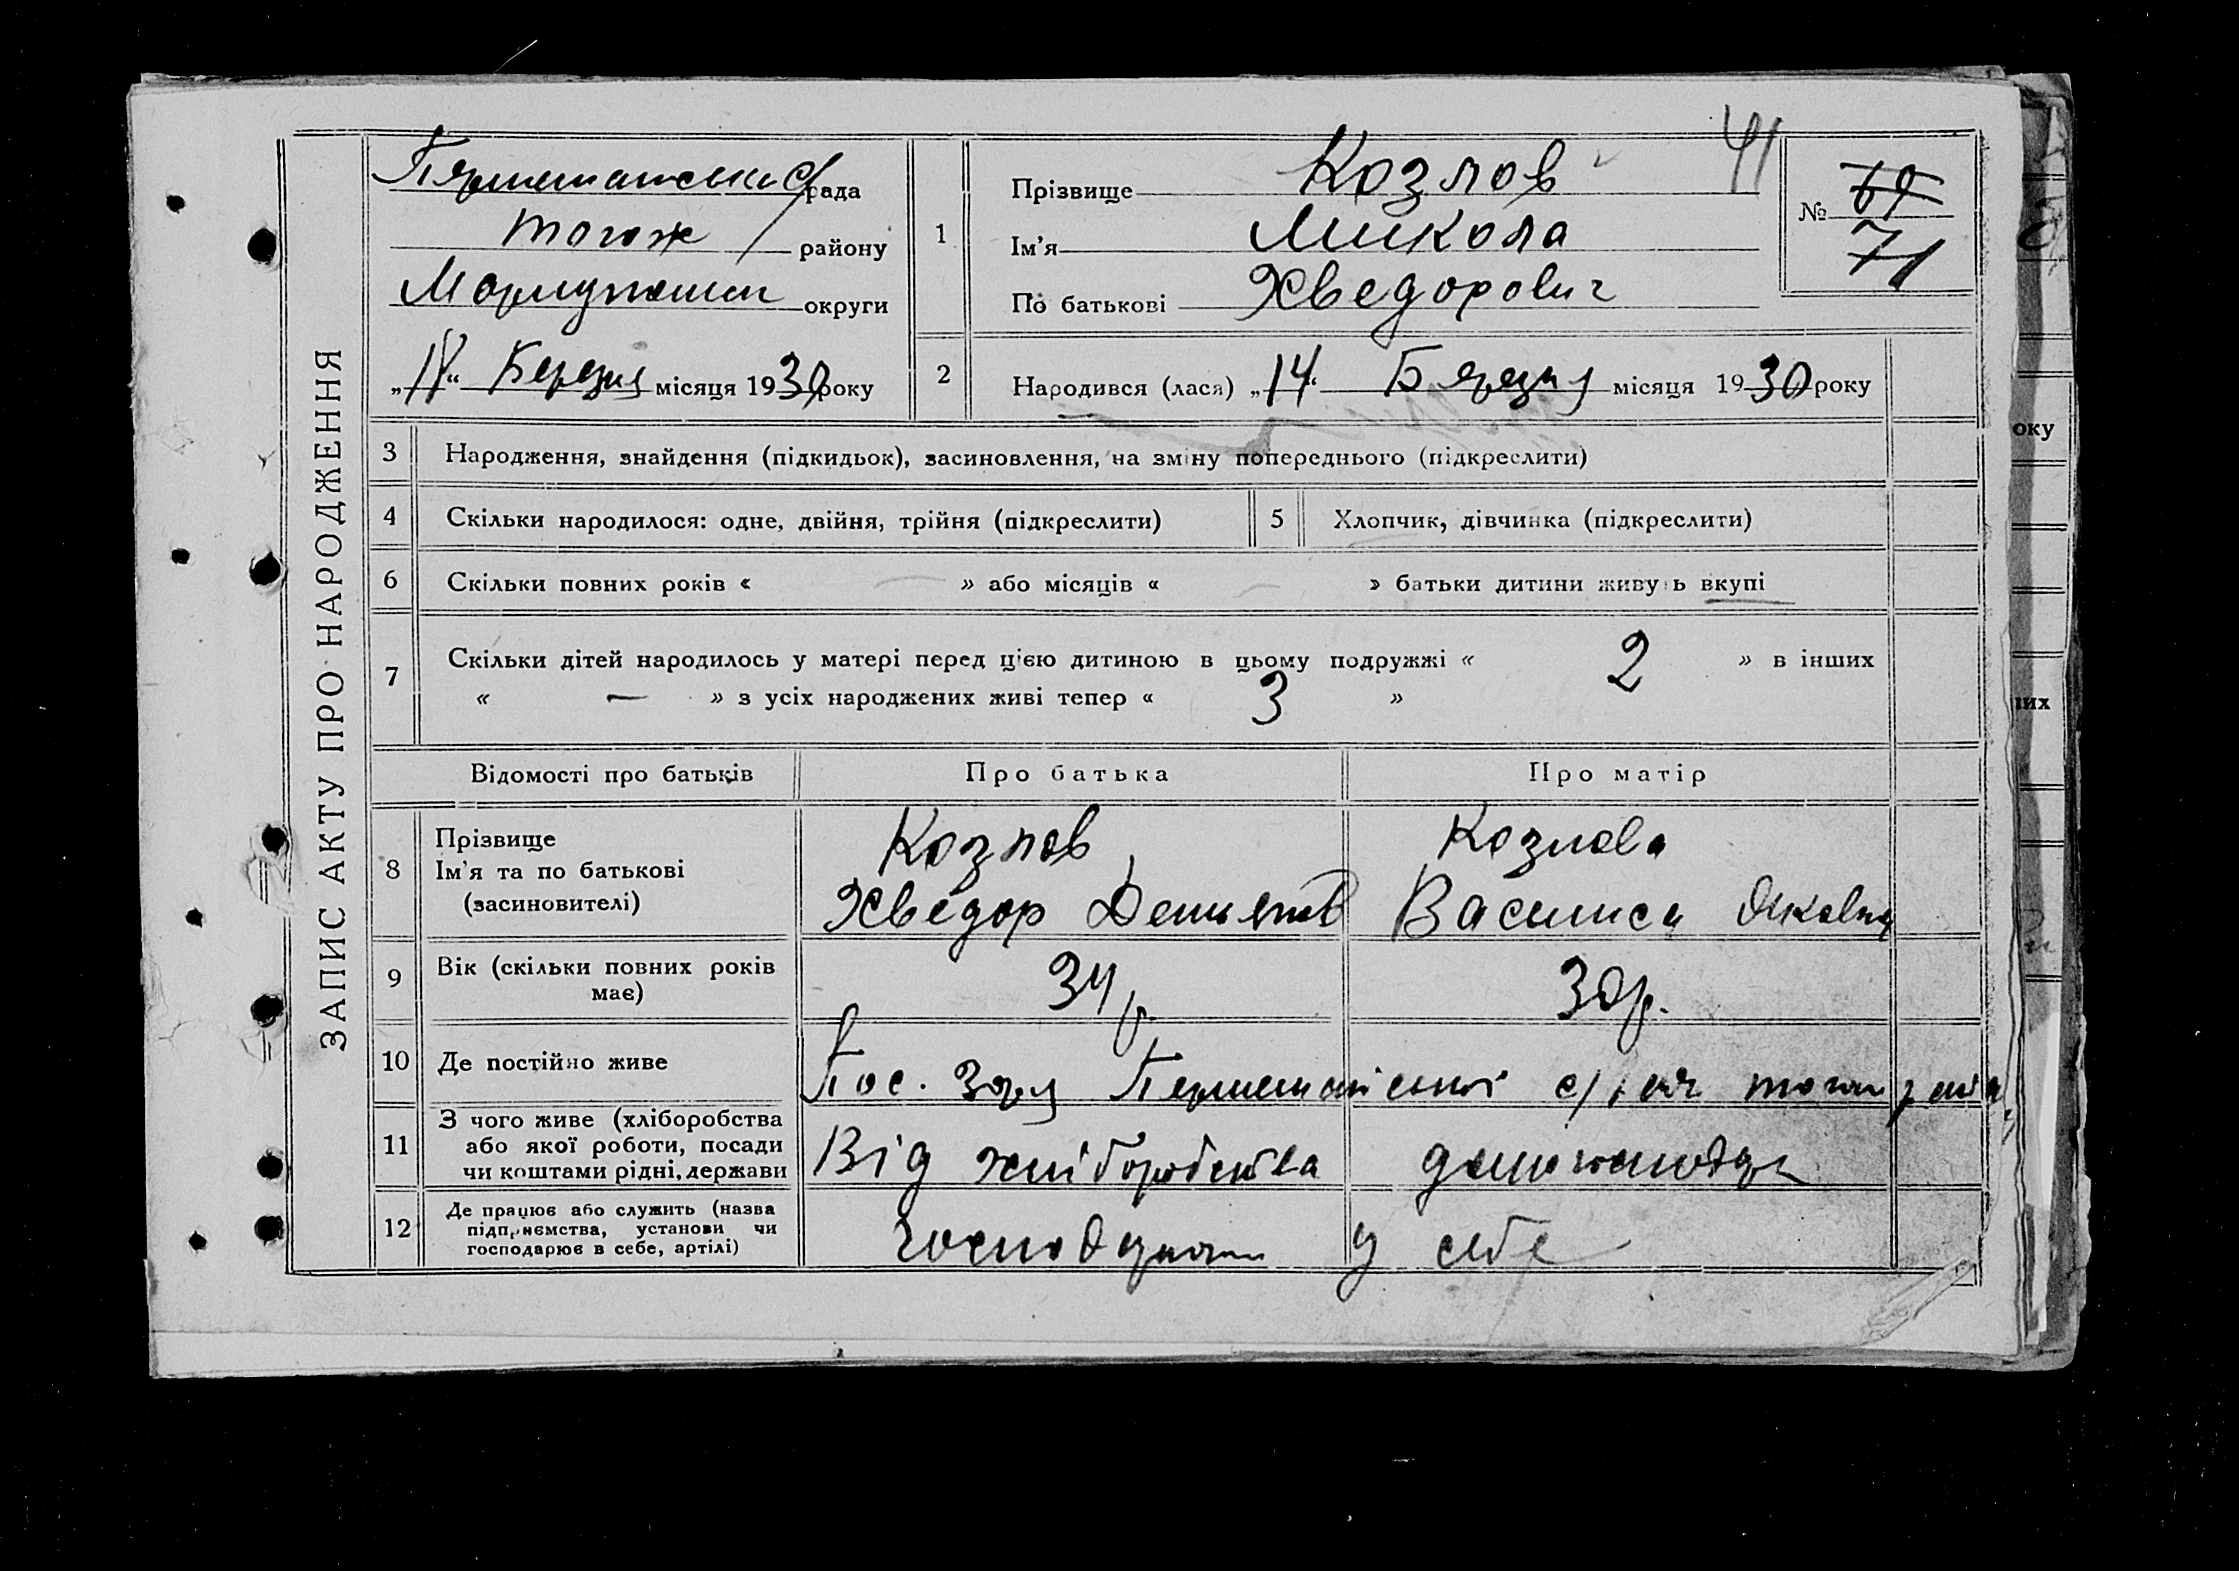 ЗАПИС АКТУ ПРО НАРОДЖЕННЯ
рада
тогож району
округи
Березня місяця 1930 року
41
1
Прізвище Козлов
Ім'я Микола
По батькові Хведорович
№ 69
71
2
Народився (лася) „14“ Бярезня місяця 1930 року
3 Народження, знайдення (підкидьок), засиновлення, на зміну попереднього (підкреслити)
4 Скільки народилося: одне, двійня, трійня (підкреслити)
5 Хлопчик, дівчинка (підкреслити)
6 Скільки повних років « — » або місяців « — » батьки дитини живуть вкупі
7 Скільки дітей народилось у матері перед цією дитиною в цьому подружжі « 2 » в інших
« — » з усіх народжених живі тепер « 3 »
Відомості про батьків
Про батька
Про матір
8
Прізвище
Ім'я та по батькові
(засновителі)
Козлов
Хведор
Козлова
Василиса
9 Вік (скільки повних років
має)
34 р.
30 р.
10 Де постійно живе
Пос. Зоря Першемайської с/ради
11
З чого живе (хліборобства
або якої роботи, посади
чи коштами рідні, держави
Від хліборобства
домогосподарка
12
Де працює або служить (назва
підприємства, установи чи
господарює в себе, артілі)
у себе
оку
них